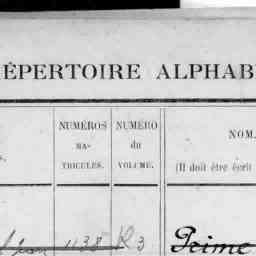 ÉPERTOIRE ALPHAB
NUMÉROS MA- TRICULES.
NUMÉRO du VOLUME.
NOM
(Il doit être écrit
1138 R3 Prime